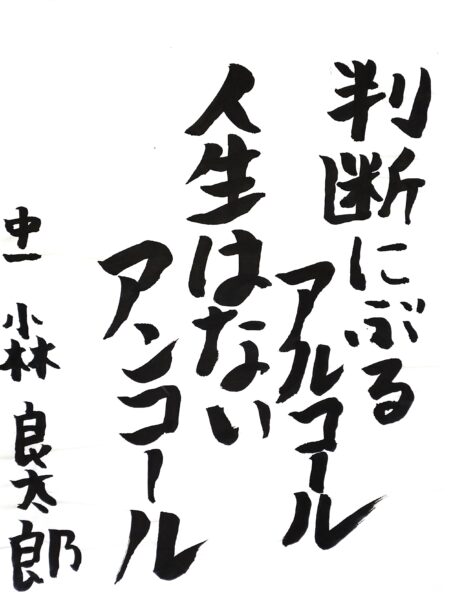 判断にぶる
アルコール
人生はない
アンコール
中一 小林 良太郎